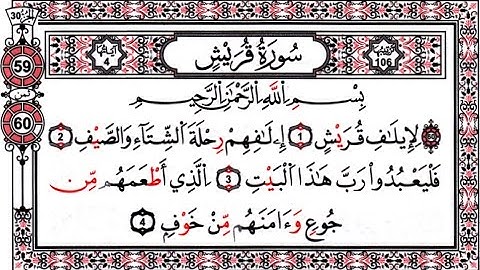 الجزء 30
59
ثمن
60
آياتها 4
سُورَةُ قُرَيْشٍ
106
بِسْمِ اِ۬للَّهِ اِ۬لرَّحْمَٰنِ اِ۬لرَّحِيمِ
لِإِيلَٰفِ قُرَيْشٍ 1 إِۦلَٰفِهِمْ رِحْلَةَ اَ۬لشِّتَآءِ وَالصَّيْفِ 2
فَلْيَعْبُدُواْ رَبَّ هَٰذَا اَ۬لْبَيْتِ 3 اِ۬لَّذِي أَطْعَمَهُم مِّن
جُوعٍ وَءَامَنَهُم مِّنْ خَوْفٍ 4